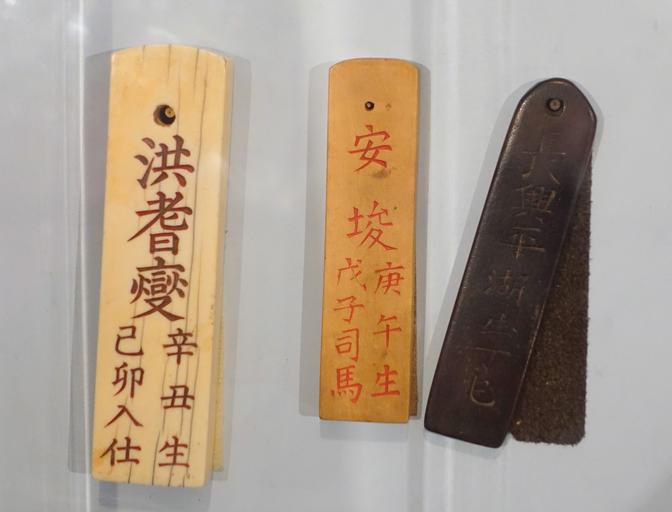 洪耆燮
辛丑生
己卯入仕
安埈
庚午生
戊子司馬
長興平湖